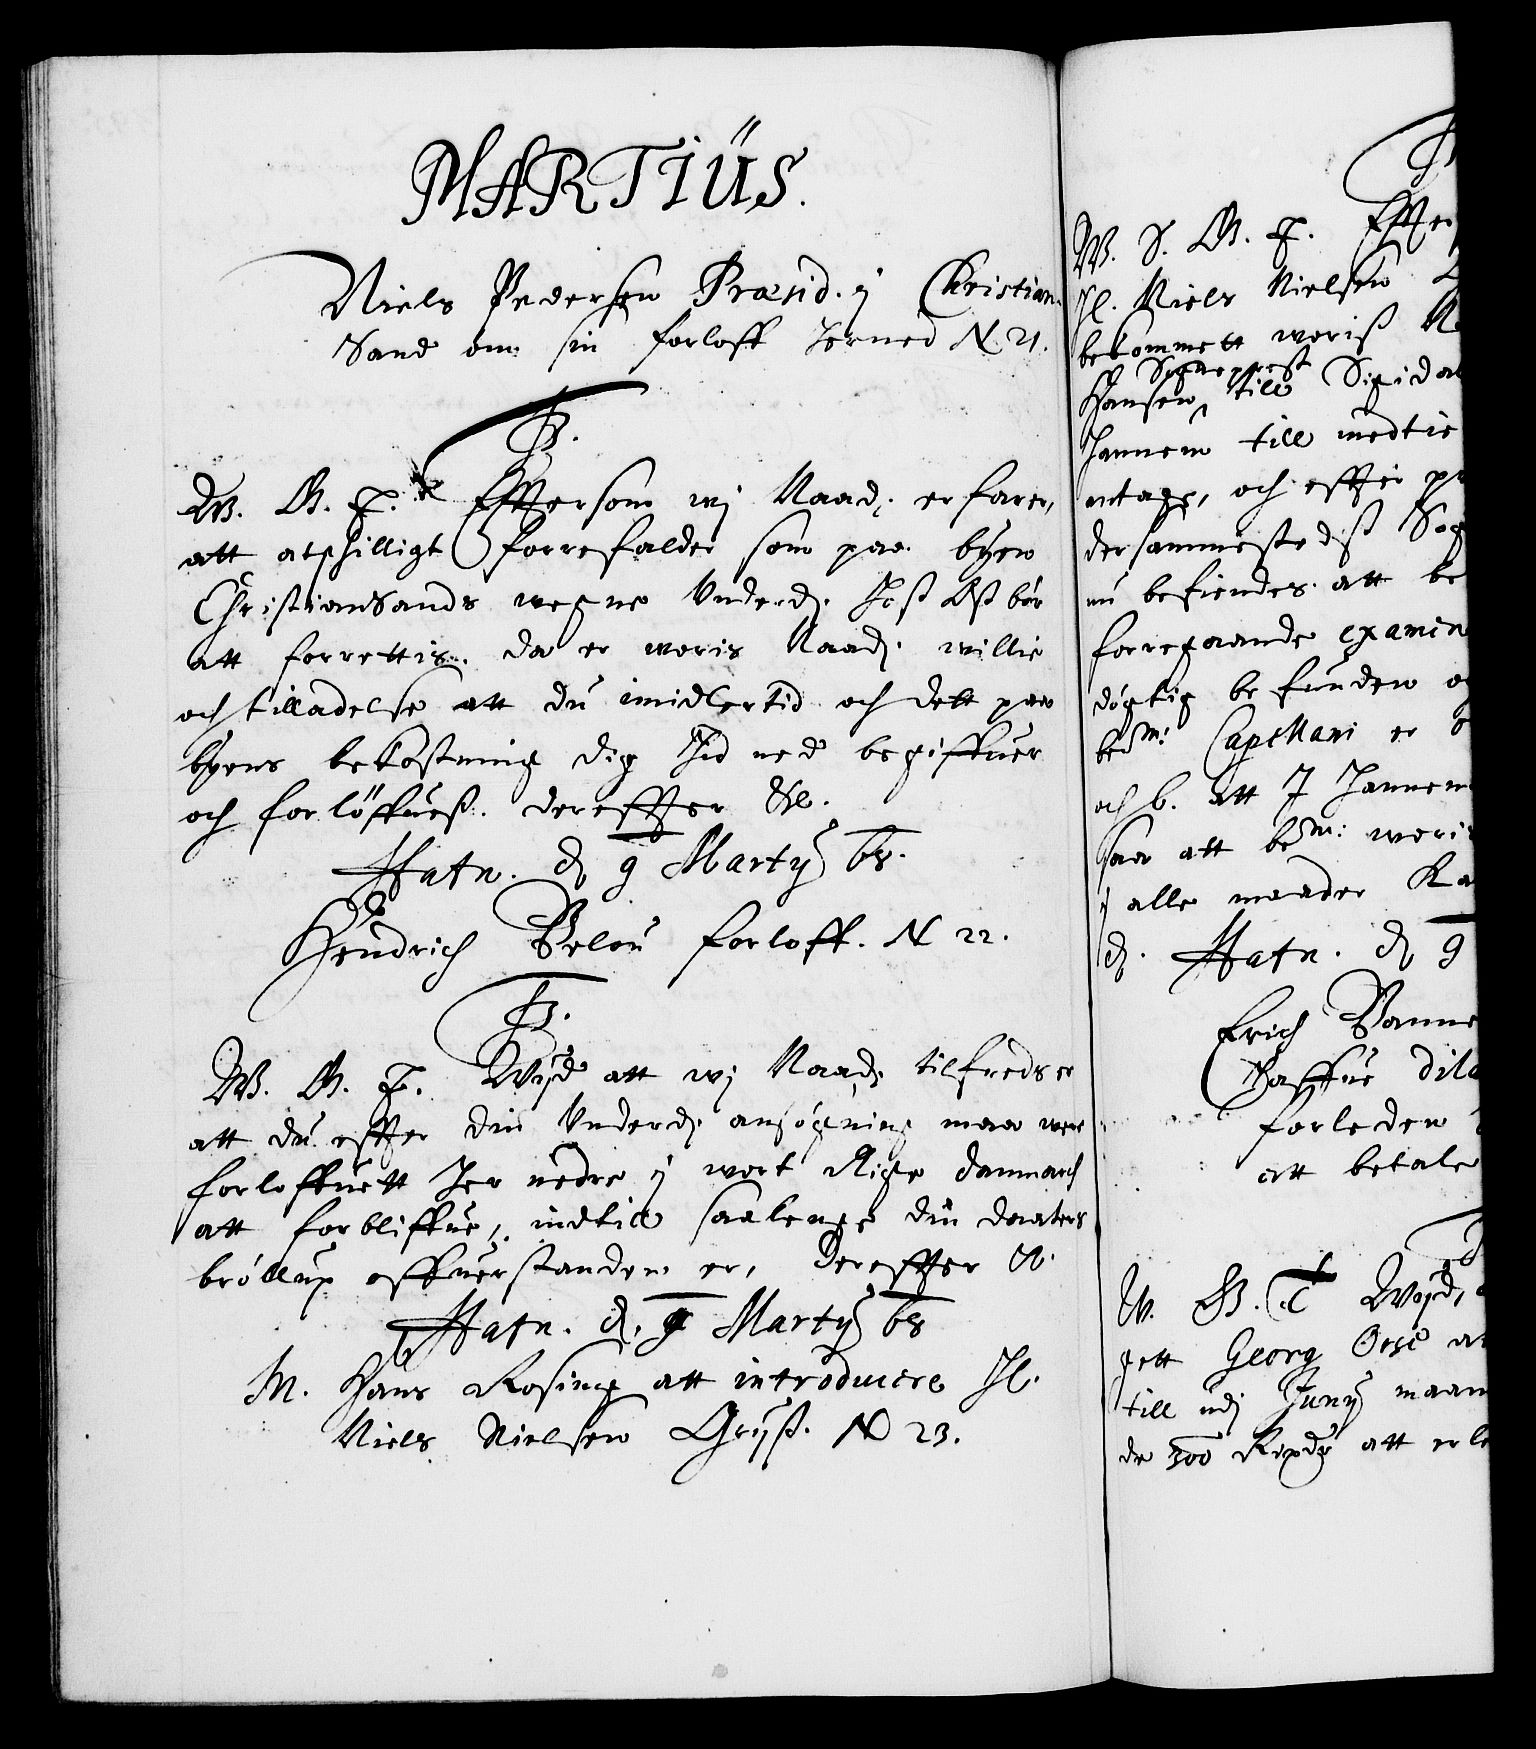 MARTIÜS.
Niels Pedersen Præsid. ÿ Christian-
Sand om sin forloff herned N 21.
F3.
W. G. T. Effersom wj Naad. erfarer,
att atschilligt forrefalder som paa byen
ChristianSands wegne Underd. hoß Oß bør
att forrettis. da er woris Naad. willie
och tilladelse att du imidlertid och dett paa
byens bekostning dig hid ned begiffuer
och forløffueß. dereffter &c.
Hafn. d 9 Martÿ 68.
Hendrich Belou forloff. N 22.
F3.
W. G. T. Wijd att wj Naad. tilfreds er
att du effter din Underd. ansøgning maa were
forloffuett her nedre ÿ wort Rige Danmarch
att forbliffue, indtill saalenge din daaters
brøllup offuerstanden er, Dereffter &.
Hafn. d. 9 Martÿ 68
M. Hans Rosing att introducere Hl.
Niels Nielsen Grijß. N 23.
W. S. G. T. Effter
Hl. Niels Nielsen
bekommett woriß
Sogneprest
Hansen till Sigidal
hannem till medtie
antage, och effter pr
dersammestedß Sog
nu befiendes att be
forregaande examin
døgtig befunden o
bedm: Capellani er
och b. att J hannem
saa att bem: wori
ÿ alle maader Ka
d. Hafn. d 9
Erich Banne
haffue dila
forleden
att betale
W. G. T Wijd,
gett Georg Oese at
till udj Junÿ maan
de 300 Rixdr att erle